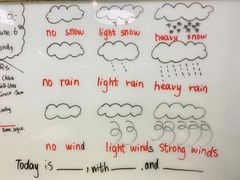 no snow light snow heavy snow
no rain light rain heavy rain
no wind light winds strong winds
Today is ______, with ______, and ______